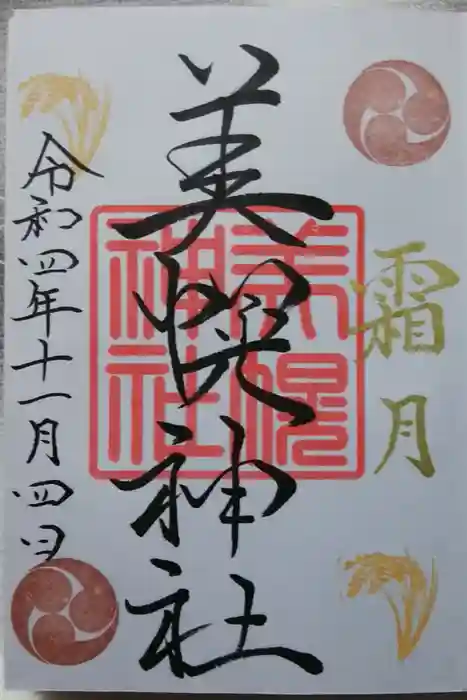 霜月
美幌神社
美幌
神社
令和四年十一月四日